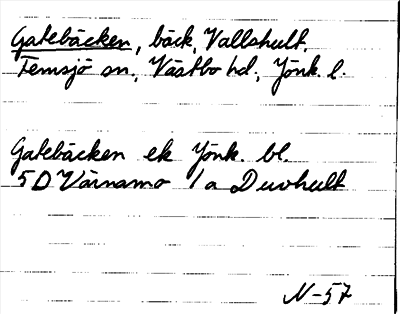 Gatebäcken, bäck, Vallshult,
Femsjö sn., Västbo hd., Jönk. l.
Gatebäcken ek Jönk. bl.
5D Värnamo 1a Duvhult
N-57